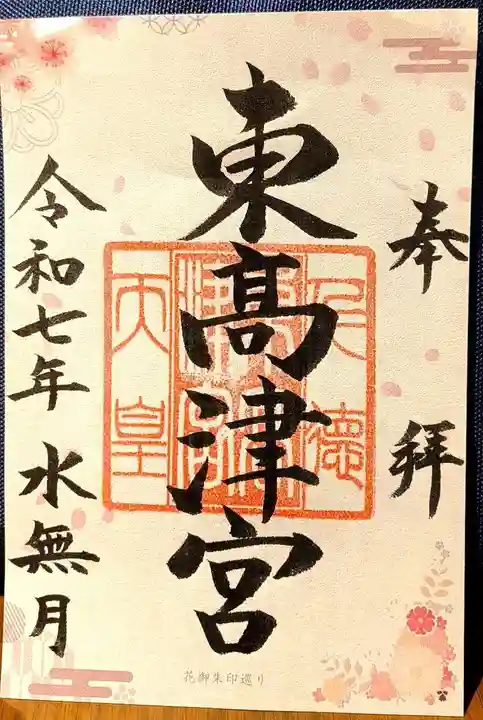 奉拝
東高津宮
仁徳
天皇
令和七年 水無月
花御朱印巡り